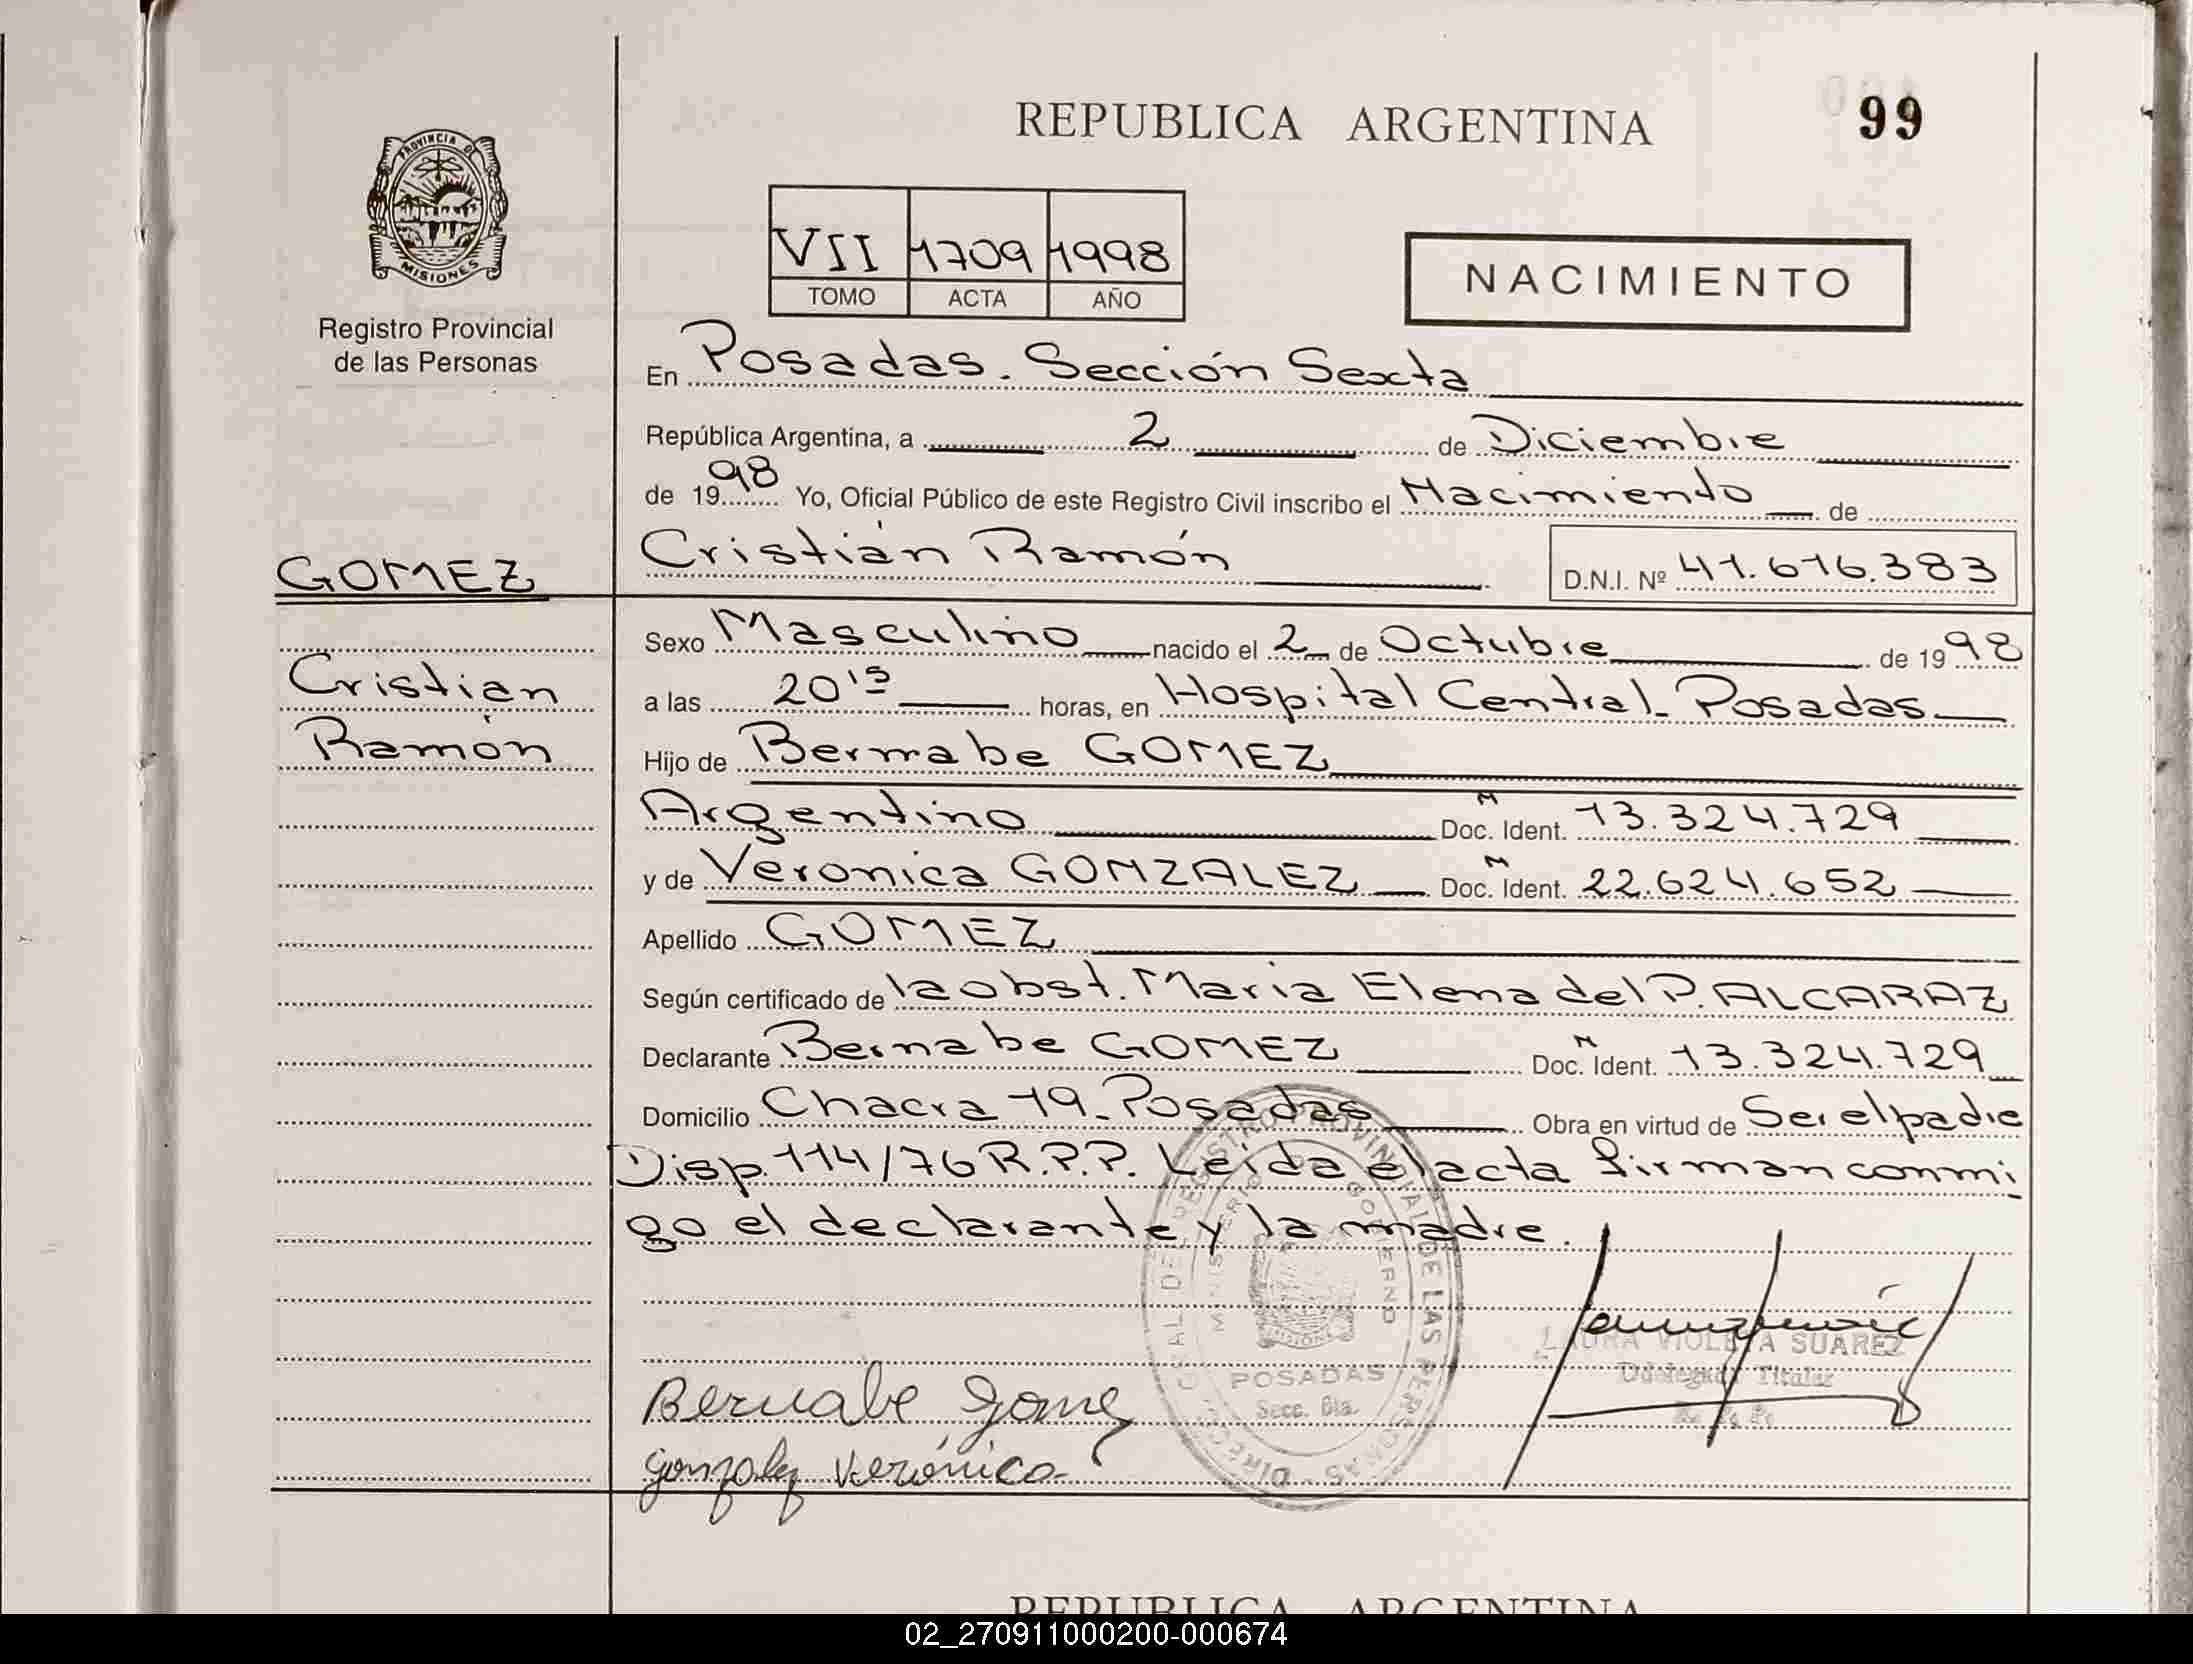 REPUBLICA ARGENTINA
99
PROVINCIA DE
MISIONES
Registro Provincial
de las Personas
VII 1709 1998
TOMO ACTA AÑO
NACIMIENTO
En Posadas. Sección Sexta
República Argentina, a 2 de Diciembre
de 1998 Yo, Oficial Público de este Registro Civil inscribo el Nacimiento de
GOMEZ
Cristian Ramón
D.N.I. Nº 41.616.383
Sexo Masculino nacido el 2 de Octubre de 1998
Cristian
a las 20¹⁵ horas, en Hospital Central - Posadas
Ramón
Hijo de Bernabe GOMEZ
Argentino M Doc. Ident. 13.324.729
y de Veronica GONZALEZ M Doc. Ident. 22.624.652
Apellido GOMEZ
Según certificado de la obst. Maria Elena del P. ALCARAZ
Declarante Bernabe GOMEZ M Doc. Ident. 13.324.729
Domicilio Chacra 19 - Posadas Obra en virtud de Ser el padre
Disp. 114/76 R.P.P. Leida el acta firman conmi
go el declarante y la madre.
DIRECCION GENERAL DEL REGISTRO PROVINCIAL DE LAS PERSONAS
MINISTERIO GOBIERNO
POSADAS
Secc. 6ta.
LAURA VIOLETA SUAREZ
Titular
Bernabe Gomez
Gonzalez Verónica
REPUBLICA ARGENTINA
02_270911000200-000674